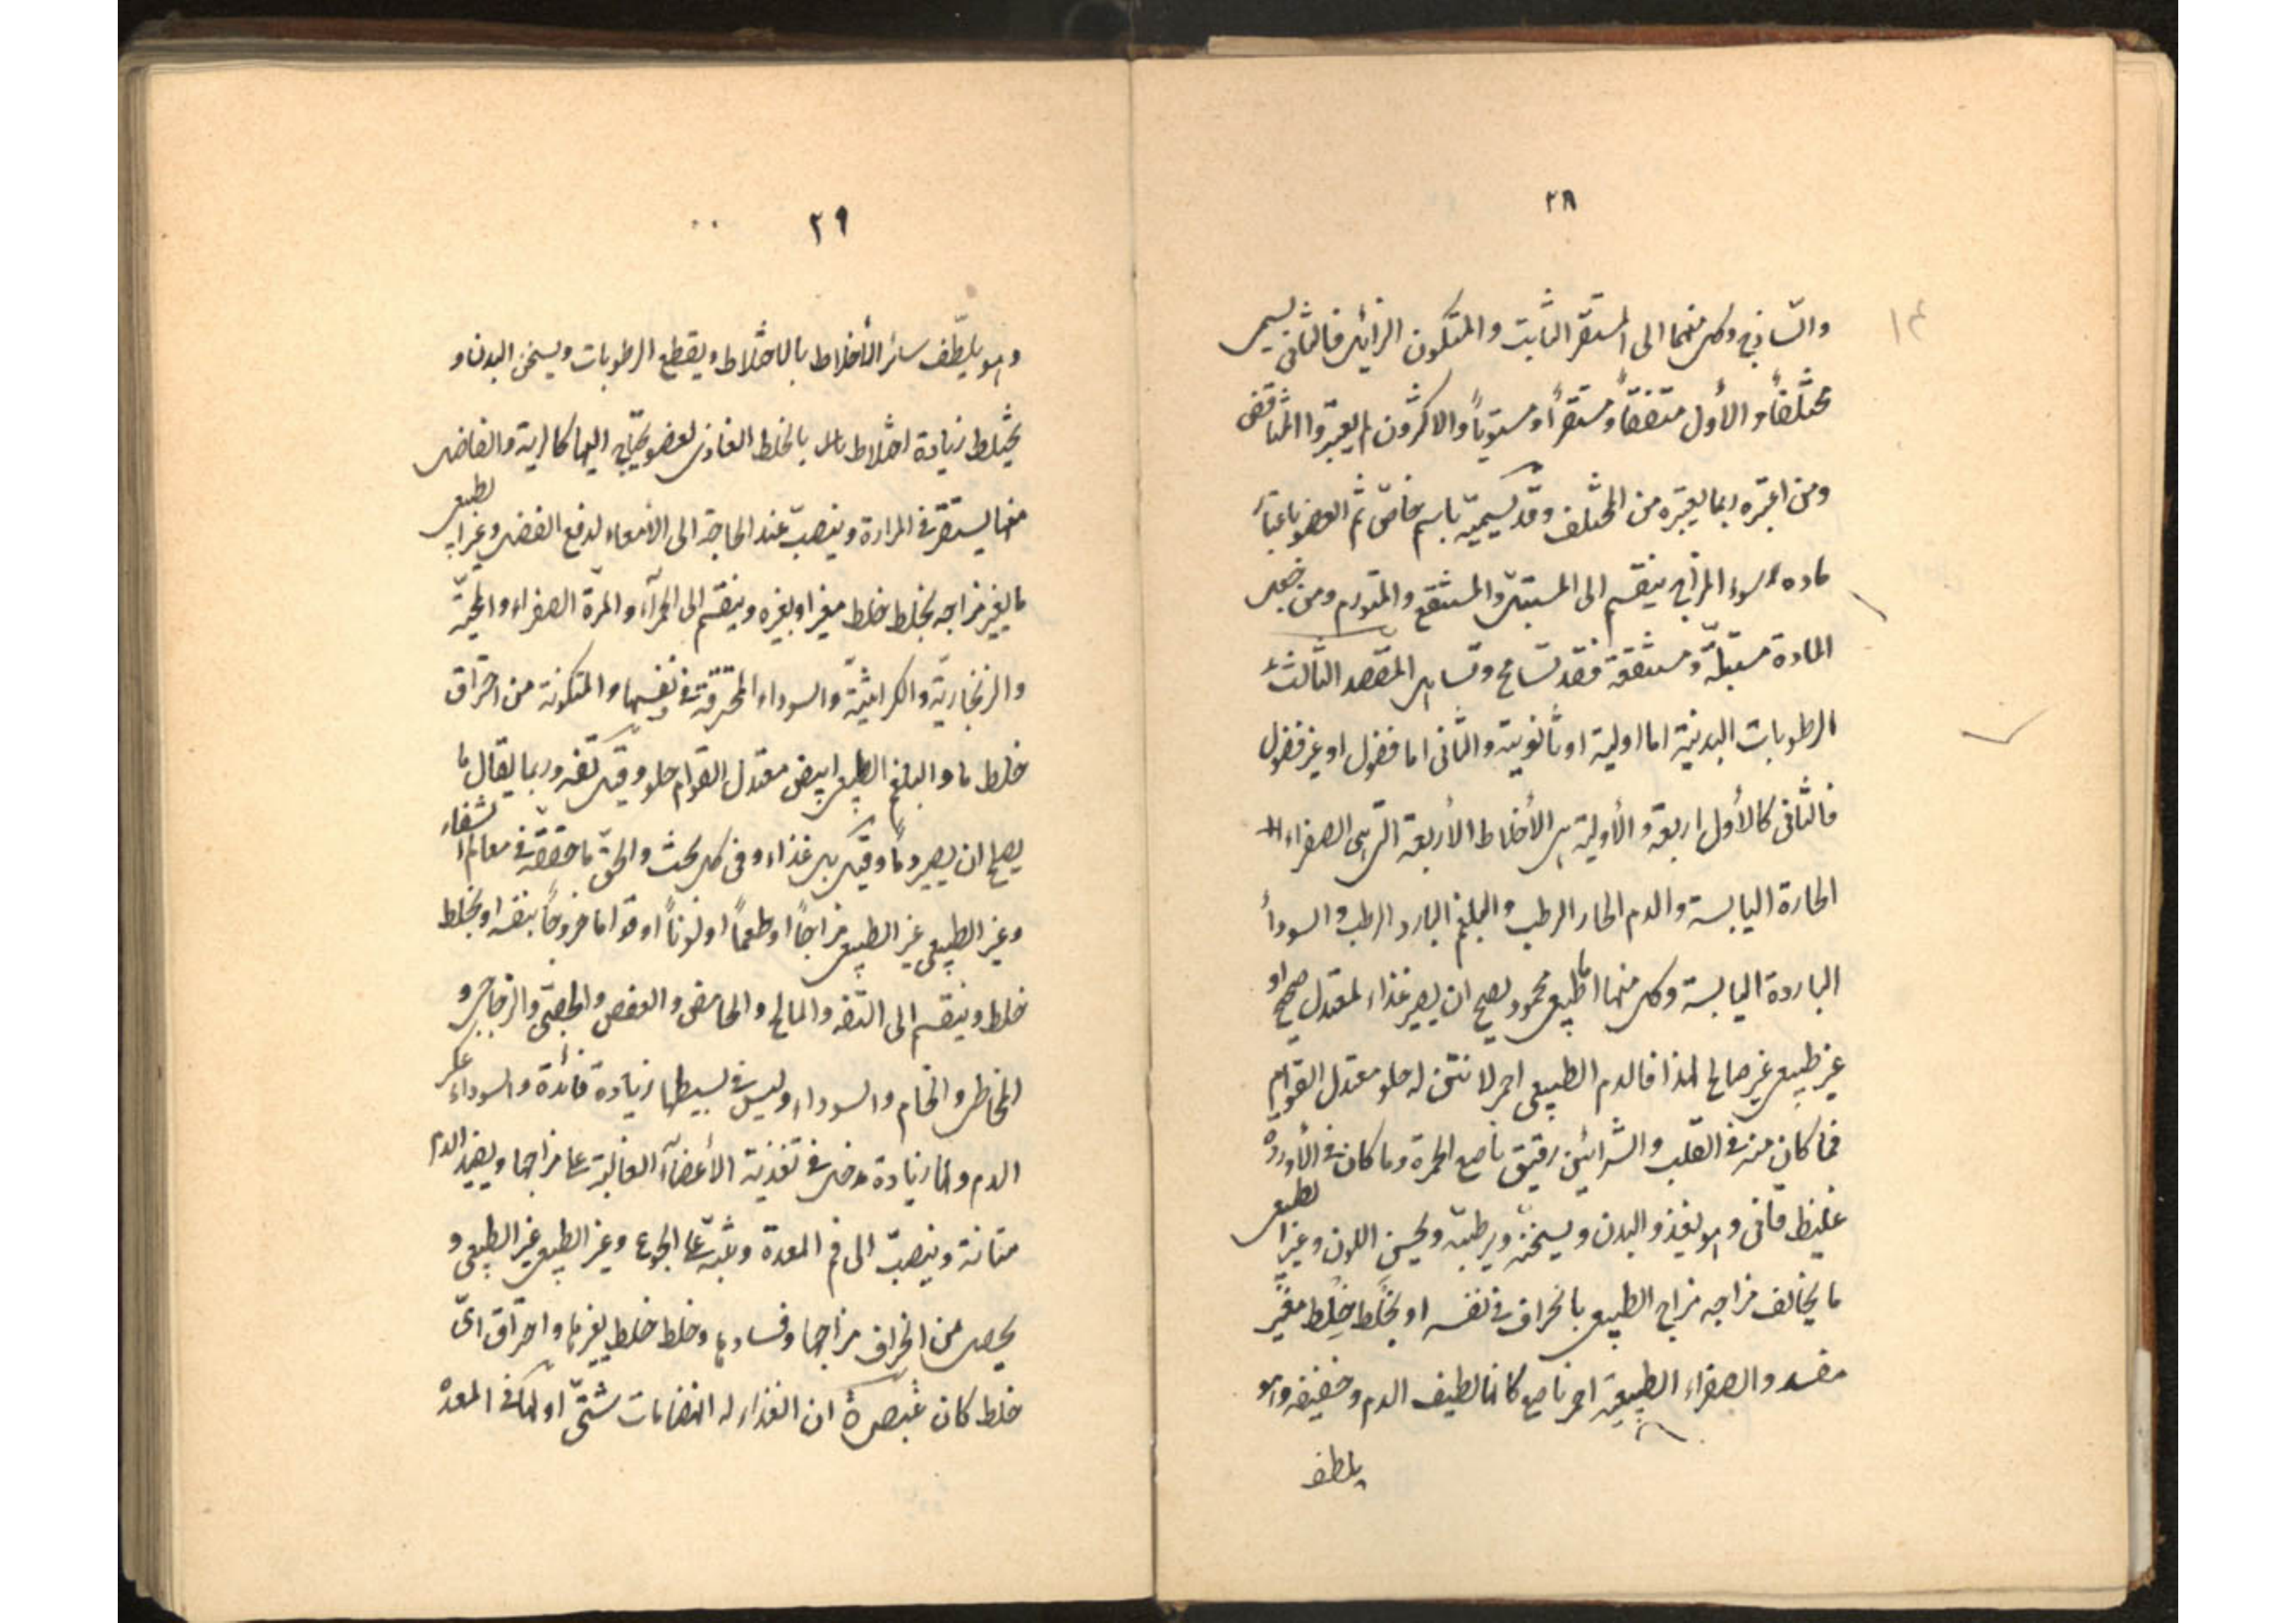 ٢٨
والساذج وكل منهما الى المستقر الثابت والمتكون الزائل فالثانى يسمى
مختلفاً والأول متفقاً ومستقراً ومستوياً والاكثرون لم يعتبروا المتناقض
ومن اعتبره ربما يعتبره من المختلف وقد يسميه باسم خاص ثم العضو باعتبار
ماده سوء المزاج ينقسم الى المبتل والمنتقع والمتورم ومن جعل
المادة مبتلة ومنتقعة فقد تسامح وتساهل المقصد الثالث
الرطوبات البدنية اما اولية او ثانوية والثانى اما فضول او غير فضول
فالثانى كالأول اربعة والأولية هى الأخلاط الأربعة التى هى الصفراء
الحارة اليابسة والدم الحار الرطب والبلغم البارد الرطب والسوداء
الباردة اليابسة وكل منها اما طبيعى محمود يصح ان يصير غذاء لمعتدل صحيح او
غير طبيعى غير صالح لهذا فالدم الطبيعى احمر لا نتن له حلو معتدل القوام
فما كان منه فى القلب والشرائين رقيق ناصع الحمرة وما كان فى الأوردة
غليظ قانى وهو يغذو البدن ويسخنه ويرطبه ويحسن اللون وغير الطبيعى
ما يخالف مزاجه مزاج الطبيعى بانحراف فى نفسه او بخلط خلط مغير
مفسد والصفراء الطبيعية احمر ناصع كانها لطيف الدم وخفيفه وهو
يلطف
٢٩
وهو يلطّف سائر الأخلاط بالاختلاط ويقطع الرطوبات ويسخن البدن و
يختلط زيادة اختلاط بالخلط الغاذى لعضو يحتاج اليها كالرية والفاضل
منها يستقر فى المرارة وينصب عند الحاجة الى الأمعاء لدفع الفضل وغير الطبيعى
ما يغير مزاجه بخلط خلط مغير او بغيره وينقسم الى الحمرآء والمرة الصفراء والمحية
والزنجارية والكراثية والسوداء المحترقة فى نفسها والمتكونة من احتراق
خلط ما والبلغم الطبيعى ابيض معتدل القوام حلو وقيل تفه وربما يقال ما
يصلح ان يصير دماً وقيل بل غذاء وفى كل بحث والحق ما حققته فى معالم الشفاء
وغير الطبيعى غير الطبيعى مزاجاً او طعماً او لوناً او قواما خروجاً بنفسه او بخلط
خلط وينقسم الى التفه والمالح والحامض والعفص والجصى والزجاجى و
المخاطى والخام والسوداء وليس فى بسيطها زيادة فائدة والسوداء عكر
الدم ولها زيادة دخل فى تغذية الأعضآء الغالبة على مزاجها ويفيد الدم
متانة وينصب الى فم المعدة وينبه على الجوع وغير الطبيعى غير الطبيعى و
يحصل من انحراف مزاجها وفسادها وخلط خلط يغيرها واحتراق اى
خلط كان تبصرة ان الغذاء له انهضامات شتى اولها فى المعدة